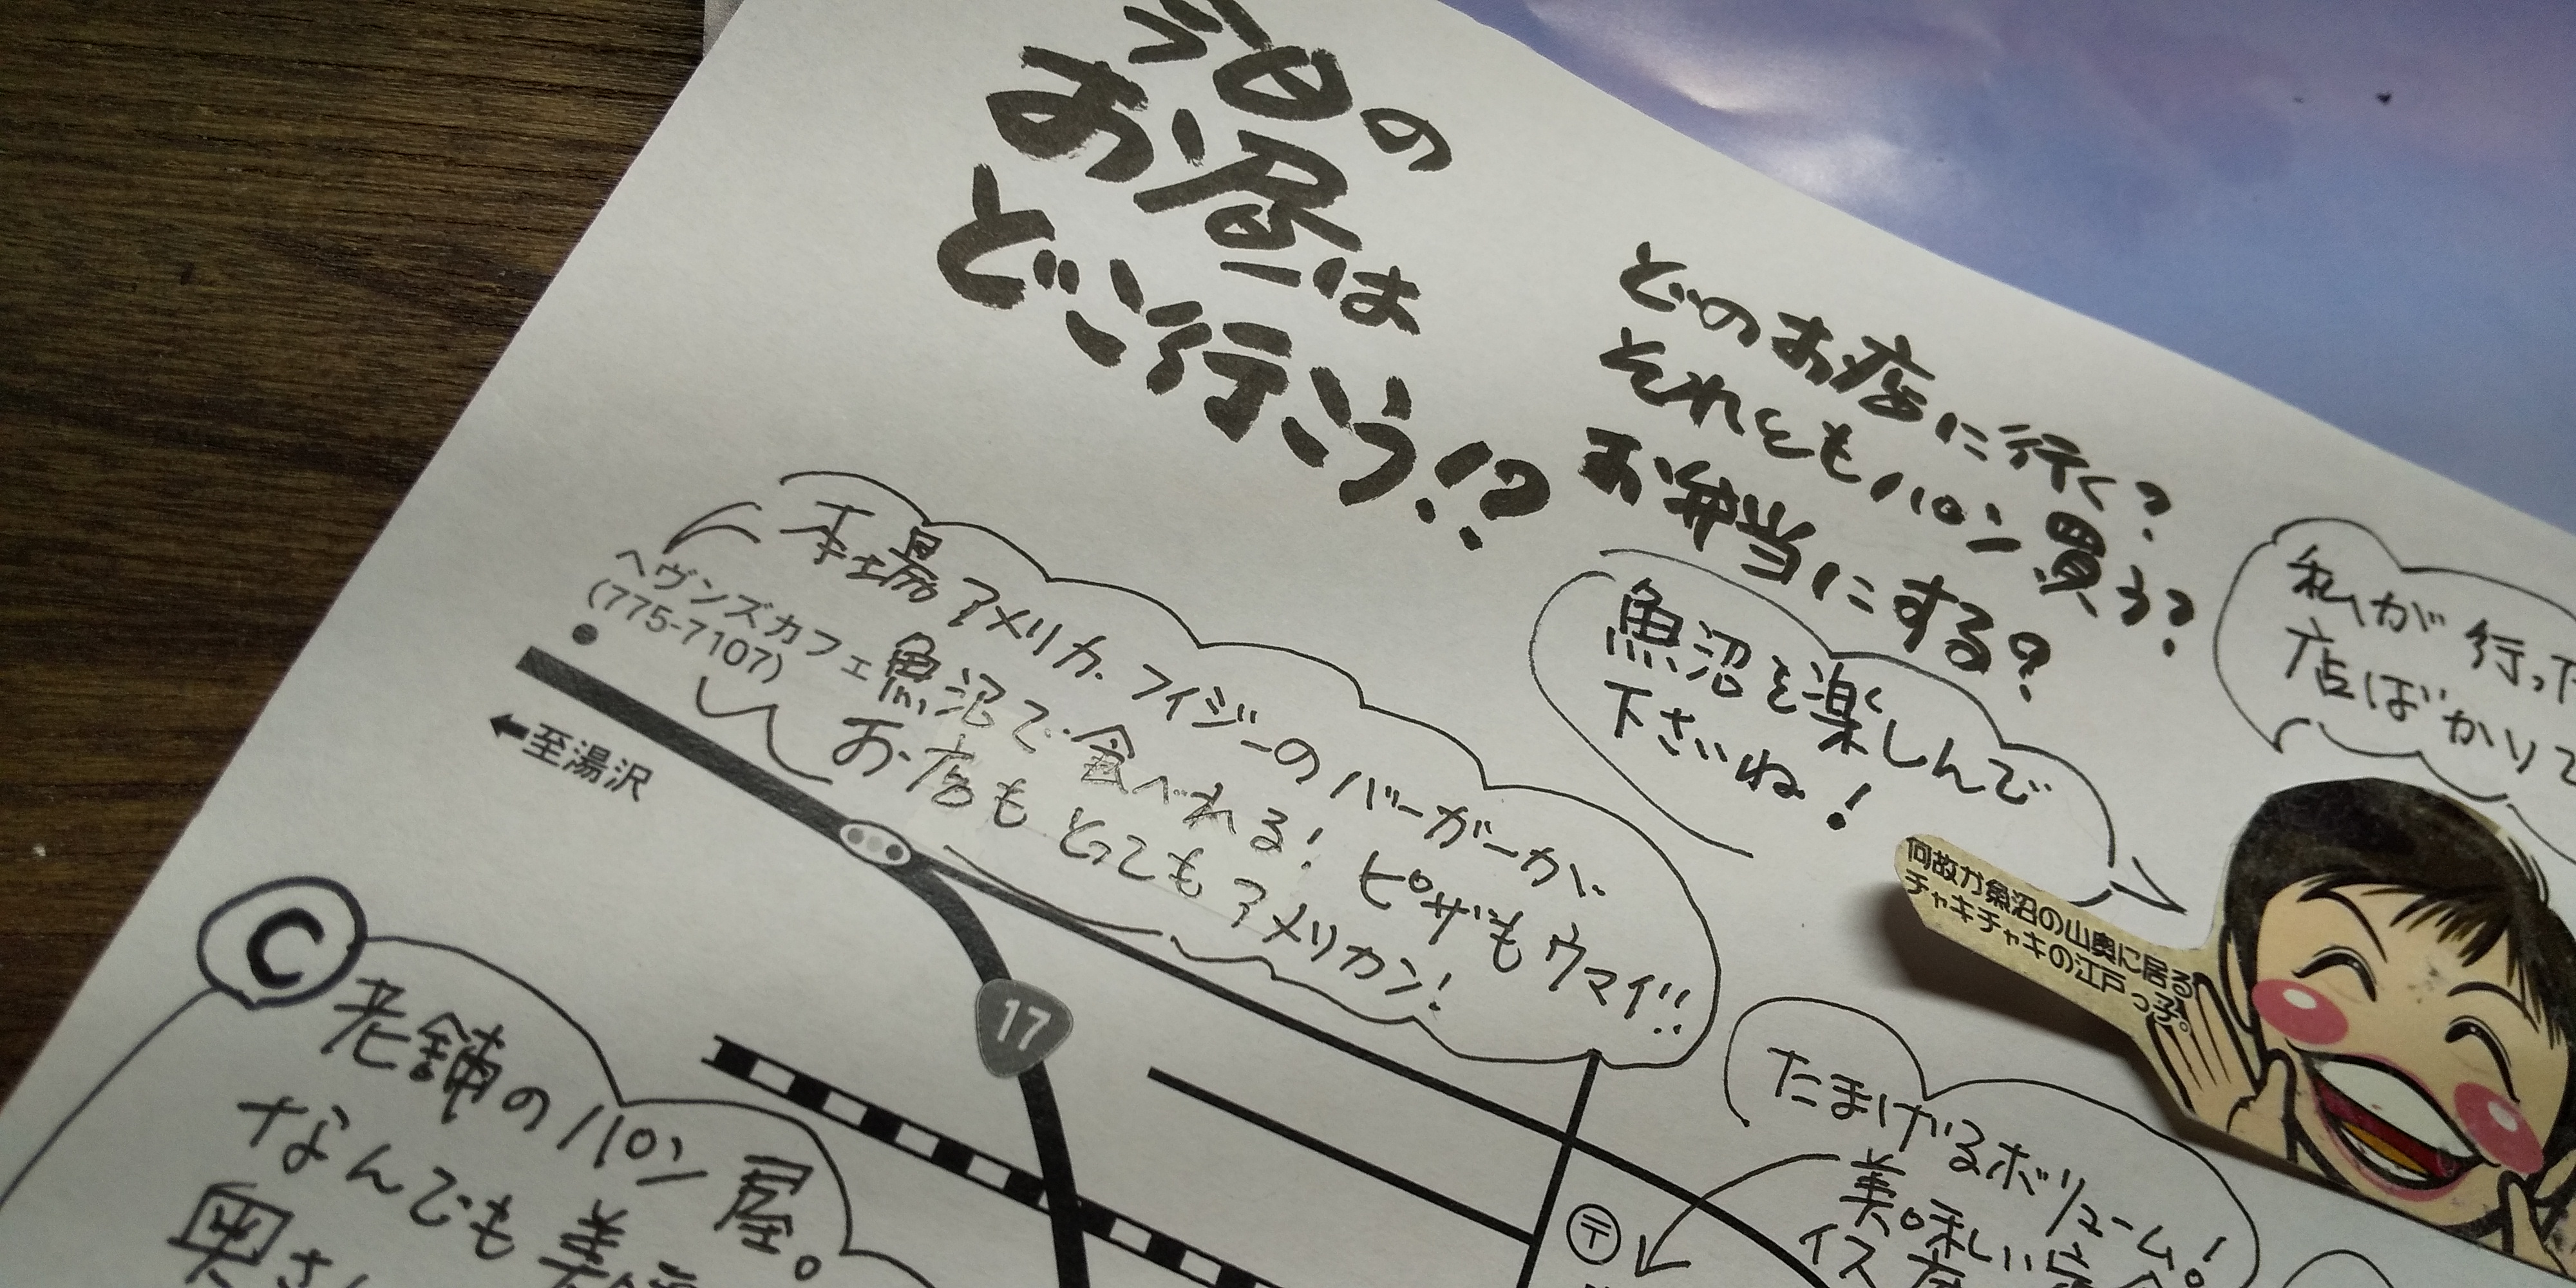 今日の
お昼は
どこ行こう!?
どのお店に行く?
それともパン買う?
お弁当にする?
本場アメリカ、フィジーのバーガーが、
魚沼で食べれる! ピザもウマイ!!
お店もとってもアメリカン!
ヘヴンズカフェ
(775-7107)
←至湯沢
17
魚沼を楽しんで
下さいね!
私が行った
店ばかりで
何故か魚沼の山奥に居る
チャキチャキの江戸っ子。
C
老舗のパン屋。
なんでも美
奥さ
たまげるボリューム!
美味しい
イス
〒